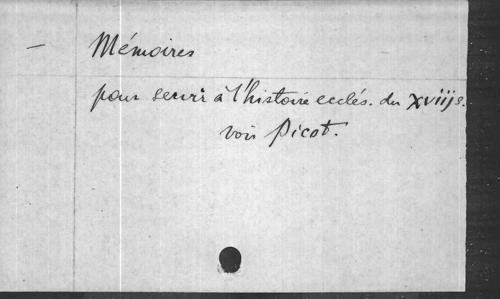 — Mémoires
pour servir à l'histoire ecclés. du XViijs.
voir Picot.